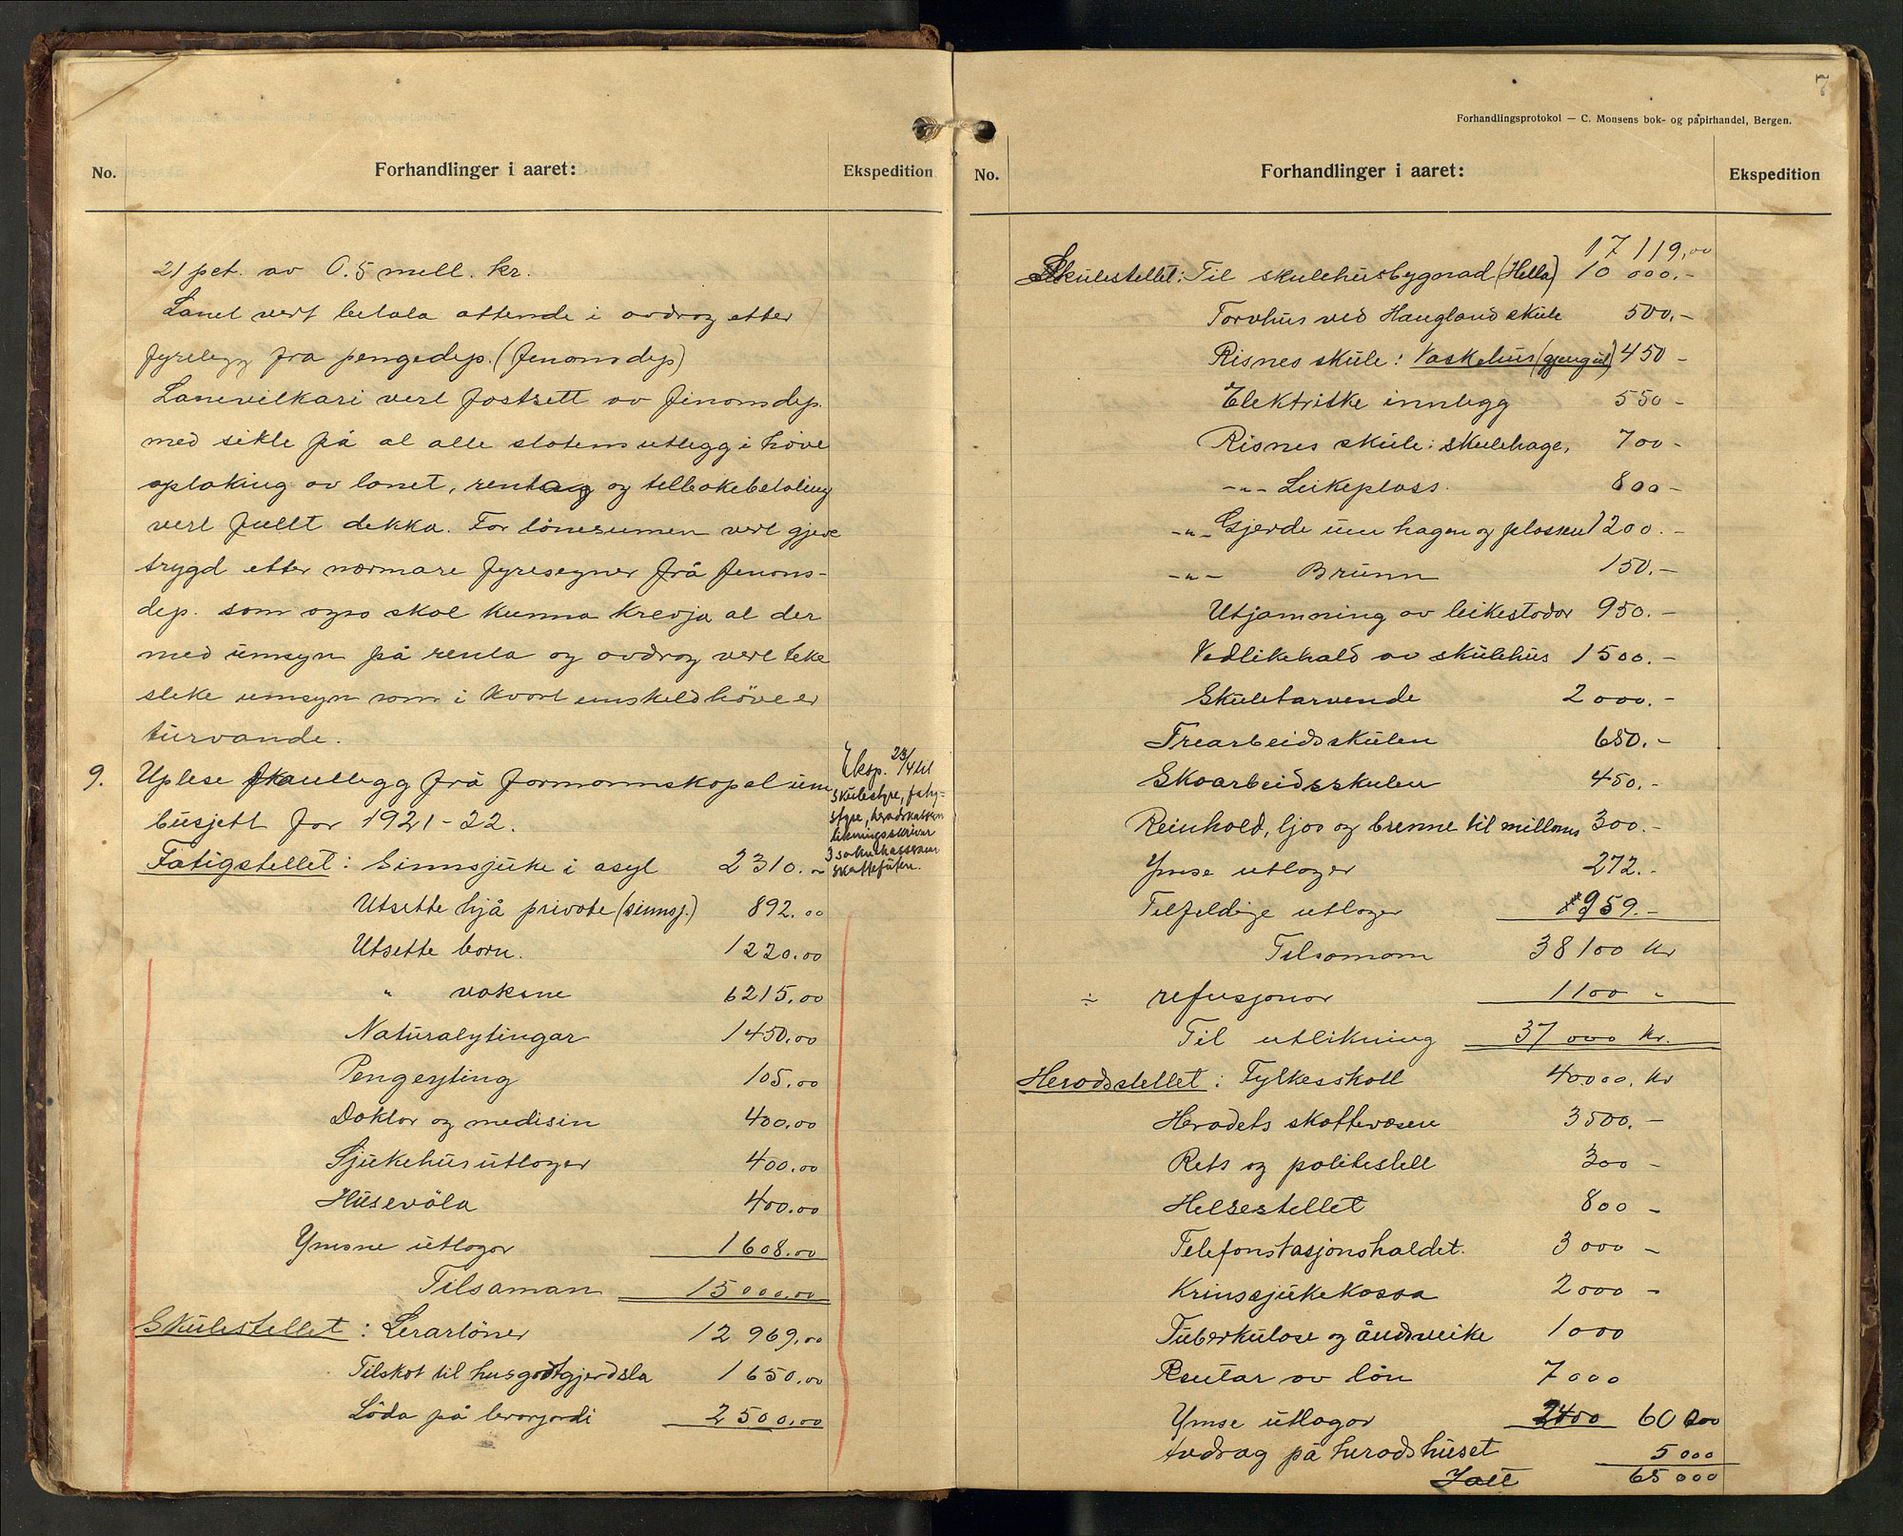 No.
Forhandlinger i aaret:
Ekspedition
21 pct. av 0.5 mill. kr.
Lånet vert betala attende i avdrag etter
fyrelegg fra pengedep. (finansdep)
Lånevilkåri vert fastsett av finansdep.
med sikte på at alle statens utlegg i høve
optaking av lånet, rentang og tilbakebetaling
vert fullt dekka. For lånesumen vert gjeve
trygd etter nærmare fyresegner frå finans-
dep. som ogso skal kunna krevja at der
med umsyn på renta og avdrag vert teke
slike umsyn som i kvart einskild høve er
turvande.
9. Uplese framlegg frå formannskapet um
busjett for 1921-22.
Eksp. 23/4 til
skulestyre, fatig-
styre, heradskassen
likningsskrivar
3 soknekasserar
skattefuten.
Fatigstellet: Sinnsjuke i asyl 2310.-
Utsette hjå private (sinnsj.) 892.00
Utsette born. 1220.00
" vaksne 6215.00
Naturalytingar 1450.00
Pengeyting 105.00
Doktor og medisin 400.00
Sjukehusutlogor 400.00
Husevøla 400.00
Ymsne utlogor 1608.00
Tilsaman 15000.00
Skulestellet: Lærarløner 12 969.00
Tilskot til husgodtgjerdsla 1650.00
Løda på lærarjordi 2500.00
7
Forhandlingsprotokol — C. Monsens bok- og papirhandel, Bergen.
No.
Forhandlinger i aaret:
Ekspedition
17 119.00
Skulestellet: Til skulehusbygnad (Hella) 10 000.-
Torvhus ved Haugland skule 500.-
Risnes skule: Vaskehus (gjeng ut) 450 -
Elektriske innlegg 550 -
Risnes skule: skulehage, 700 -
-"- Leikeplass. 800 -
-"- Gjerde um hagen og plassen 1200.-
-"- Brunn 150.-
Utjamning av leikestodor 950.-
Vedlikehald av skulehus 1500.-
Skuletarvende 2000.-
Trearbeidsskulen 650.-
Skoarbeidsskulen 450.-
Reinhold, ljos og brenne til 300.-
Ymse utlogor 272.-
Tilfeldige utlogor 959.-
Tilsamam 38100 kr
÷ refusjonar 1100 -
Til utlikning 37 000 kr.
Heradsstellet: Fylkesskatt 40000. kr
Heradets skattevæsen 3500.-
Rets og politistell 300 -
Helsestellet 800 -
Telefonstasjonshaldet. 3000 -
Krinssjukekassa 2000 -
Tuberkulose og åndsveike 1000
Rentar av lån 7000
Ymse utlogor 2400 60 000
Avdrag på heradshuset 5 000
Ialt 65 000